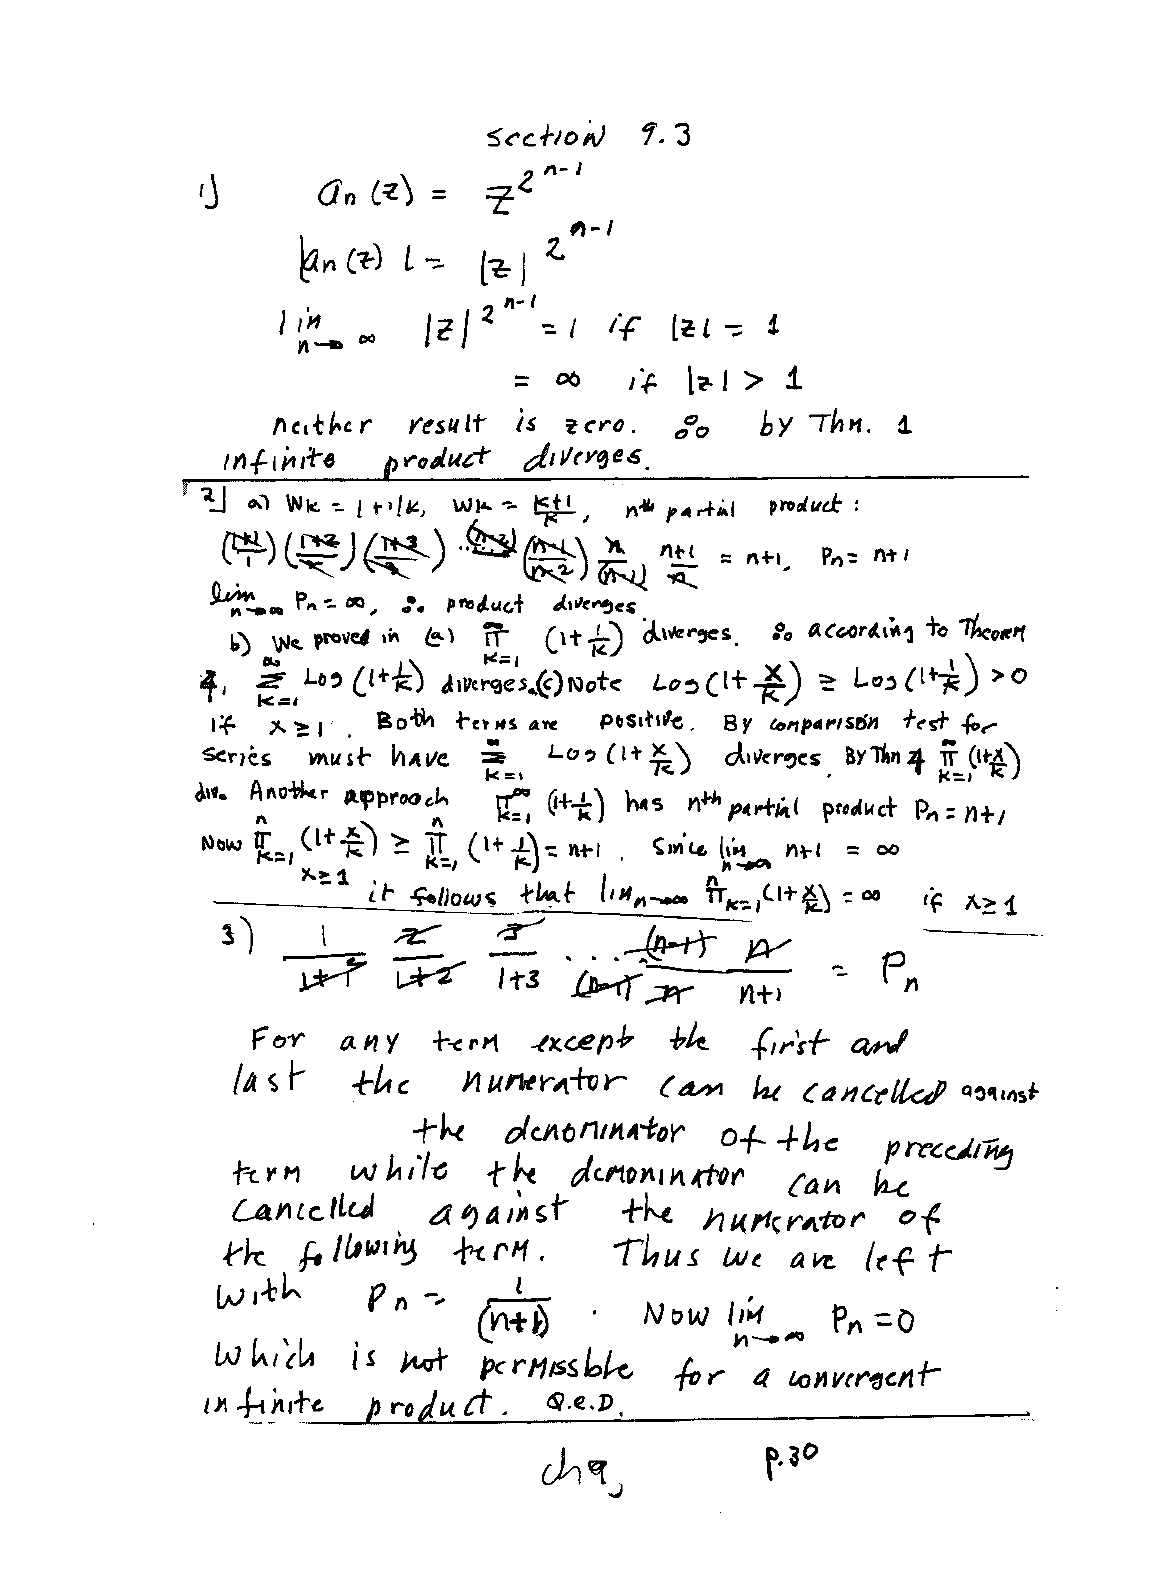 section 9.3
1) an (z) = z^2^n-1
|an (z) | = |z|^2^n-1
lim n→∞ |z|^2^n-1 = 1 if |z| = 1
= ∞ if |z| > 1
neither result is zero. ∴ by Thm. 1
infinite product diverges.
2) a) Wk = 1+1/k, Wk = k+1/k, nth partial product :
(1+1/1) (1+2/2) (1+3/3) ... (n-1/n-2) n/(n-1) n+1/n = n+1, Pn = n+1
lim n→∞ Pn = ∞, ∴ product diverges
b) We proved in (a) ∞ Π k=1 (1+1/k) diverges. ∴ according to Theorem
4, ∞ Σ k=1 Log (1+1/k) diverges. (c) Note Log (1+x/k) ≥ Log (1+1/k) > 0
if x ≥ 1. Both terms are positive. By comparison test for
series must have ∞ Σ k=1 Log (1+x/k) diverges. By Thm 4 ∞ Π k=1 (1+x/k)
div. Another approach Π∞ k=1 (1+1/k) has nth partial product Pn = n+1
Now n Π k=1 (1+x/k) ≥ n Π k=1 (1+1/k) = n+1. Since lim n→∞ n+1 = ∞
x≥1 it follows that lim n→∞ n Π k=1 (1+x/k) = ∞ if x≥1
3) 1/1+1 2/1+2 3/1+3 ... (n-1)/n n/n+1 = Pn
For any term except the first and
last the numerator can be cancelled against
the denominator of the preceding
term while the demoninator can be
cancelled against the numerator of
the following term. Thus we are left
with Pn = 1/(n+1) . Now lim n→∞ Pn = 0
which is not permissble for a convergent
infinite product. Q.e.D.
ch 9, p.30